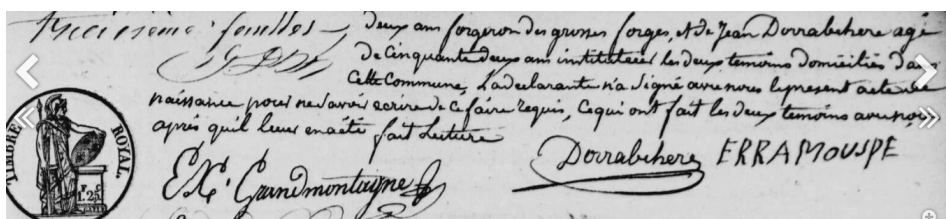 Troisième feuillet
deux ans forgeron des grosses forges, et de Jean Dorrabehere agé
de cinquante deux ans instituteur les deux temoins domiciliés dans
Cette Commune, La declarante n'a signé avec nous le present acte de
naissance pour ne savoir ecrire de ce faire requis, Ce qui ont fait les deux temoins avec nous
après qu'il leur en a été fait Lecture
Dorrabehere ERRAMOUSPE
Grandmontagne
TIMBRE ROYAL
F. C.
1.25